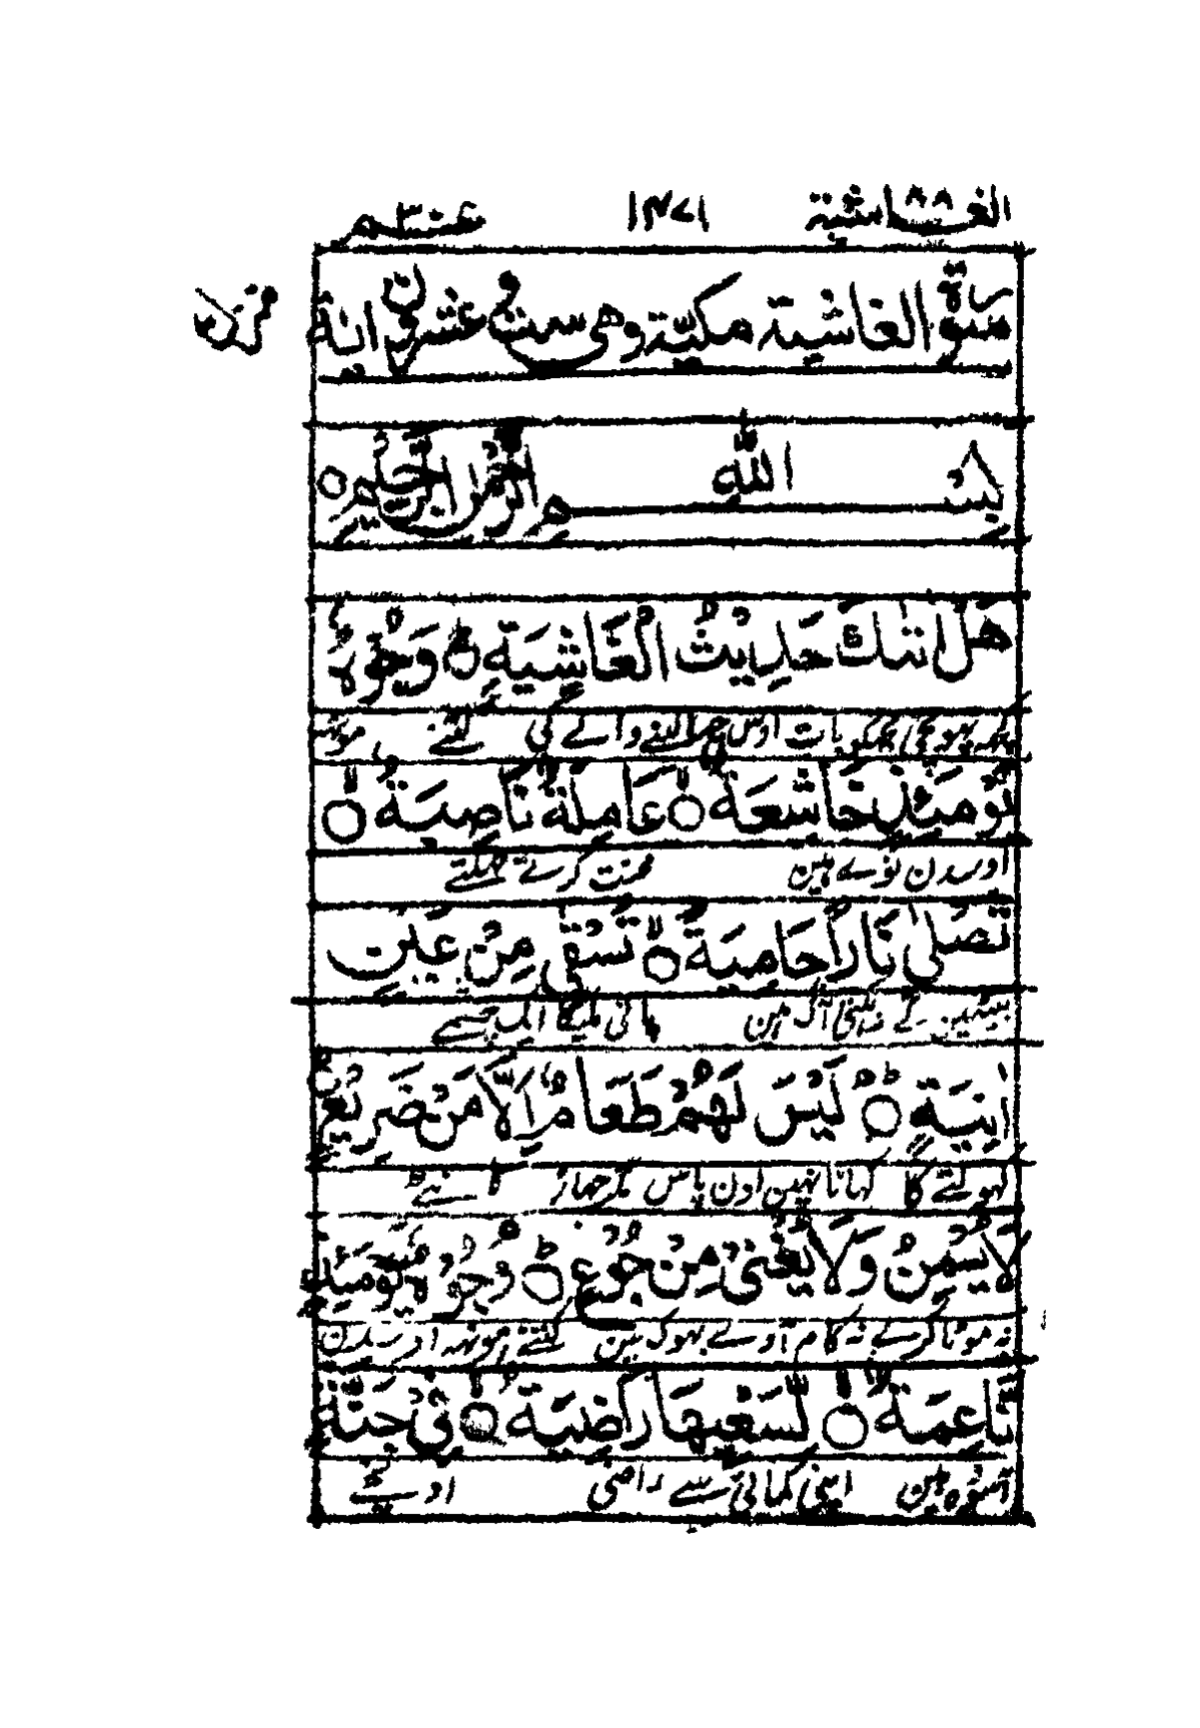 الغاشیة ۸۸ ۱۴۷۱ عم ۳۰
سورة الغاشیة مکیّة وهی ست و عشرون ایة
بِسْمِ اللهِ الرَّحْمٰنِ الرَّحِیْمِ ○
هَلْ اَتٰىكَ حَدِیْثُ الْغَاشِیَةِ ○ وُجُوْهٌ
بات اوس چھپا لینے والے کی کتنے مونہہ
یَّوْمَئِذٍ خَاشِعَةٌ ○ عَامِلَةٌ نَّاصِبَةٌ ○
اوسدن نوے ہین محنت کرتے تھکتے
تَصْلٰى نَارًا حَامِیَةً ○ تُسْقٰى مِنْ عَیْنٍ
بیٹھین گے دہکتی آگ مین پانی ملیگا ایک چشمے
اٰنِیَةٍ ○ لَیْسَ لَهُمْ طَعَامٌ اِلَّا مِنْ ضَرِیْعٍ
کھولتے کا کھانا نہین اون پاس مگر جھاڑ کانٹے
لَا یُسْمِنُ وَلَا یُغْنِیْ مِنْ جُوْعٍ ○ وُجُوْهٌ یَّوْمَئِذٍ
نہ موٹا کرے نہ کام آوے بھوک مین کتنے مونہہ اوسدن
نَّاعِمَةٌ ○ لِّسَعْیِهَا رَاضِیَةٌ ○ فِیْ جَنَّةٍ
آسودہ ہین اپنی کمائی سے راضی اونچے